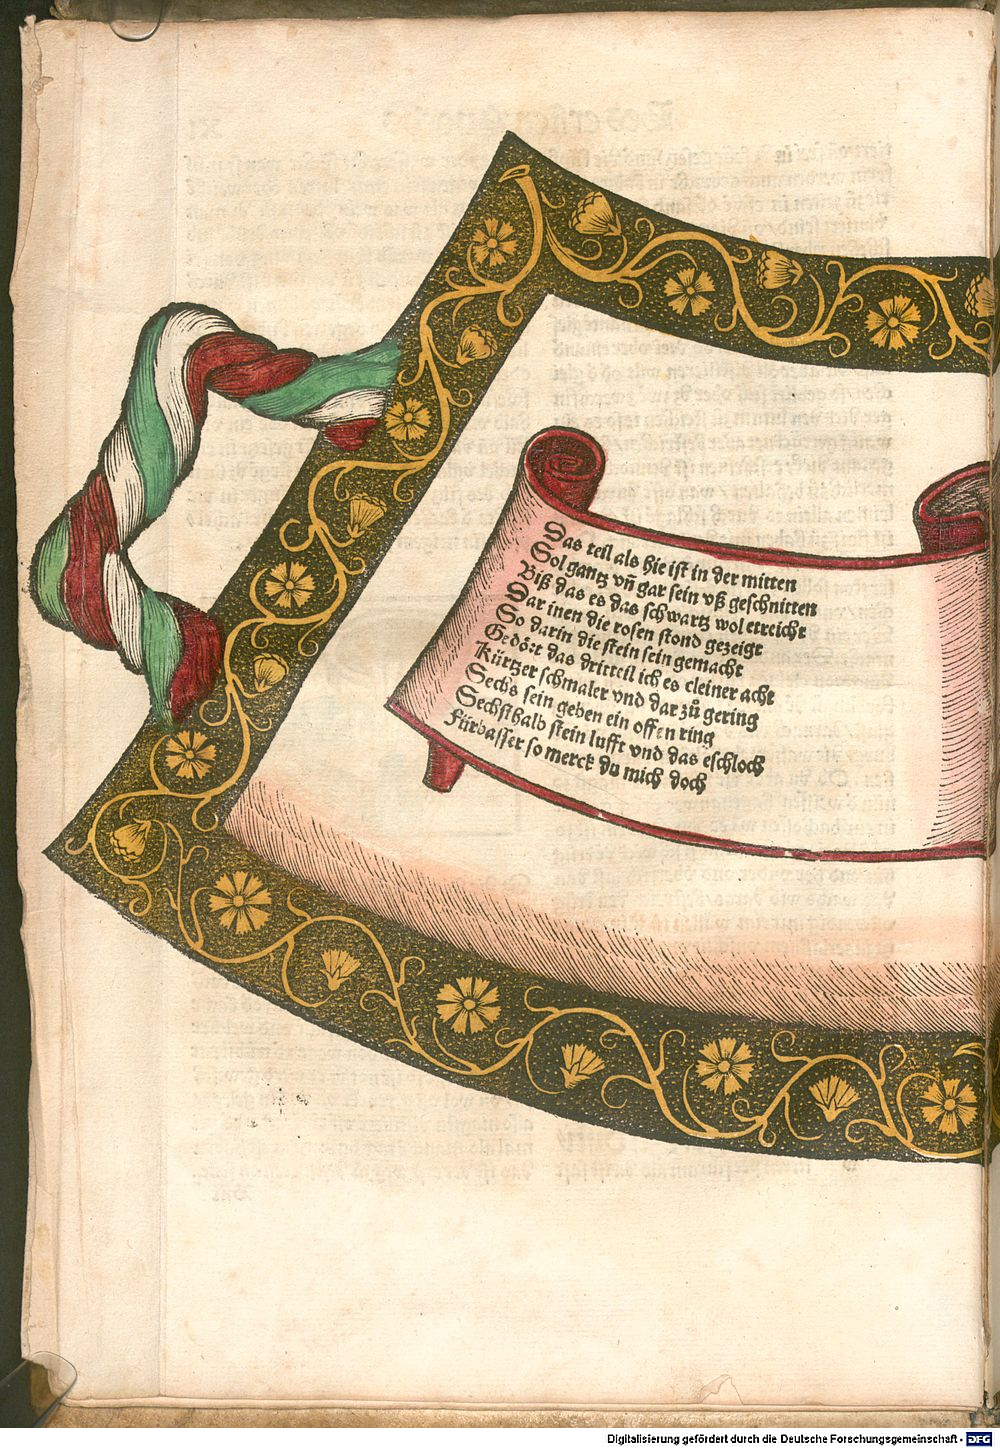 Das teil als hie ist in der mitten
Sol gantz vñ gar sein vß geschnitten
Biß das es das schwartz wol erreicht
Dar inen die rosen stond gezeigt
So darin die stein sein gemacht
Gedört das dritteil ich es cleiner acht
Kürtzer schmaler vnd dar zů gering
Sechs sein geben ein offen ring
Sechsthalb stein lufft vnd das eschloch
Fürbasser so merck du mich doch
Digitalisierung gefördert durch die Deutsche Forschungsgemeinschaft - DFG